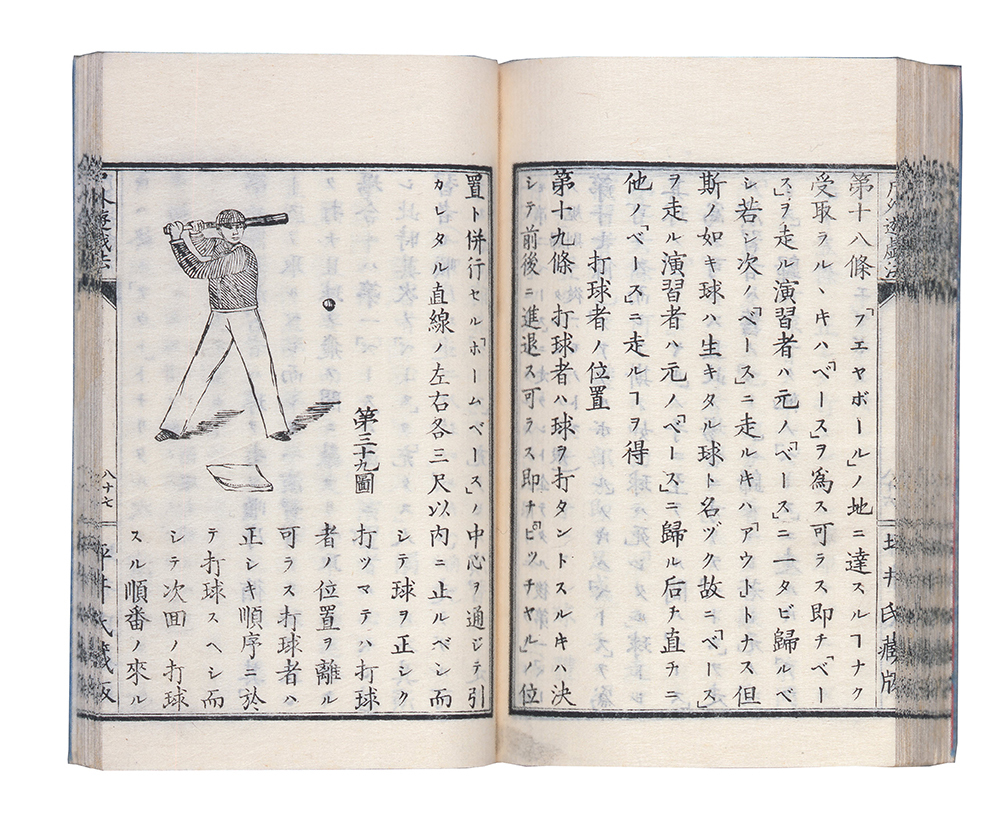 第十八條「フエヤボール」ノ地ニ達スルヿナク
受取ラルヽキハ「ベース」ヲ爲ス可ラス即チ「ベー
ス」ヲ走ル演習者ハ元ノ「ベース」ニ一タビ歸ルベ
シ若シ次ノ「ベース」ニ走ルキハ「アウト」トナス但
斯ノ如キ球ハ生キタル球ト名ヅク故ニ「ベース」
ヲ走ル演習者ハ元ノ「ベース」ニ歸ル后チ直チニ
他ノ「ベース」ニ走ルヿヲ得
打球者ノ位置
第十九條 打球者ハ球ヲ打タントスルキハ決
シテ前後ニ進退ス可ラス即チ「ピッチヤル」ノ位
坪井氏藏版
置ト併行セル「ホームベース」ノ中心ヲ通ジテ引
カレタル直線ノ左右各三尺以内ニ止ルベシ而
シテ球ヲ正シク
打ツマテハ打球
者ノ位置ヲ離ル
可ラス打球者ハ
正シキ順序ニ於
テ打球スヘシ而
シテ次回ノ打球
スル順番ノ來ル
第三十九圖
八十七